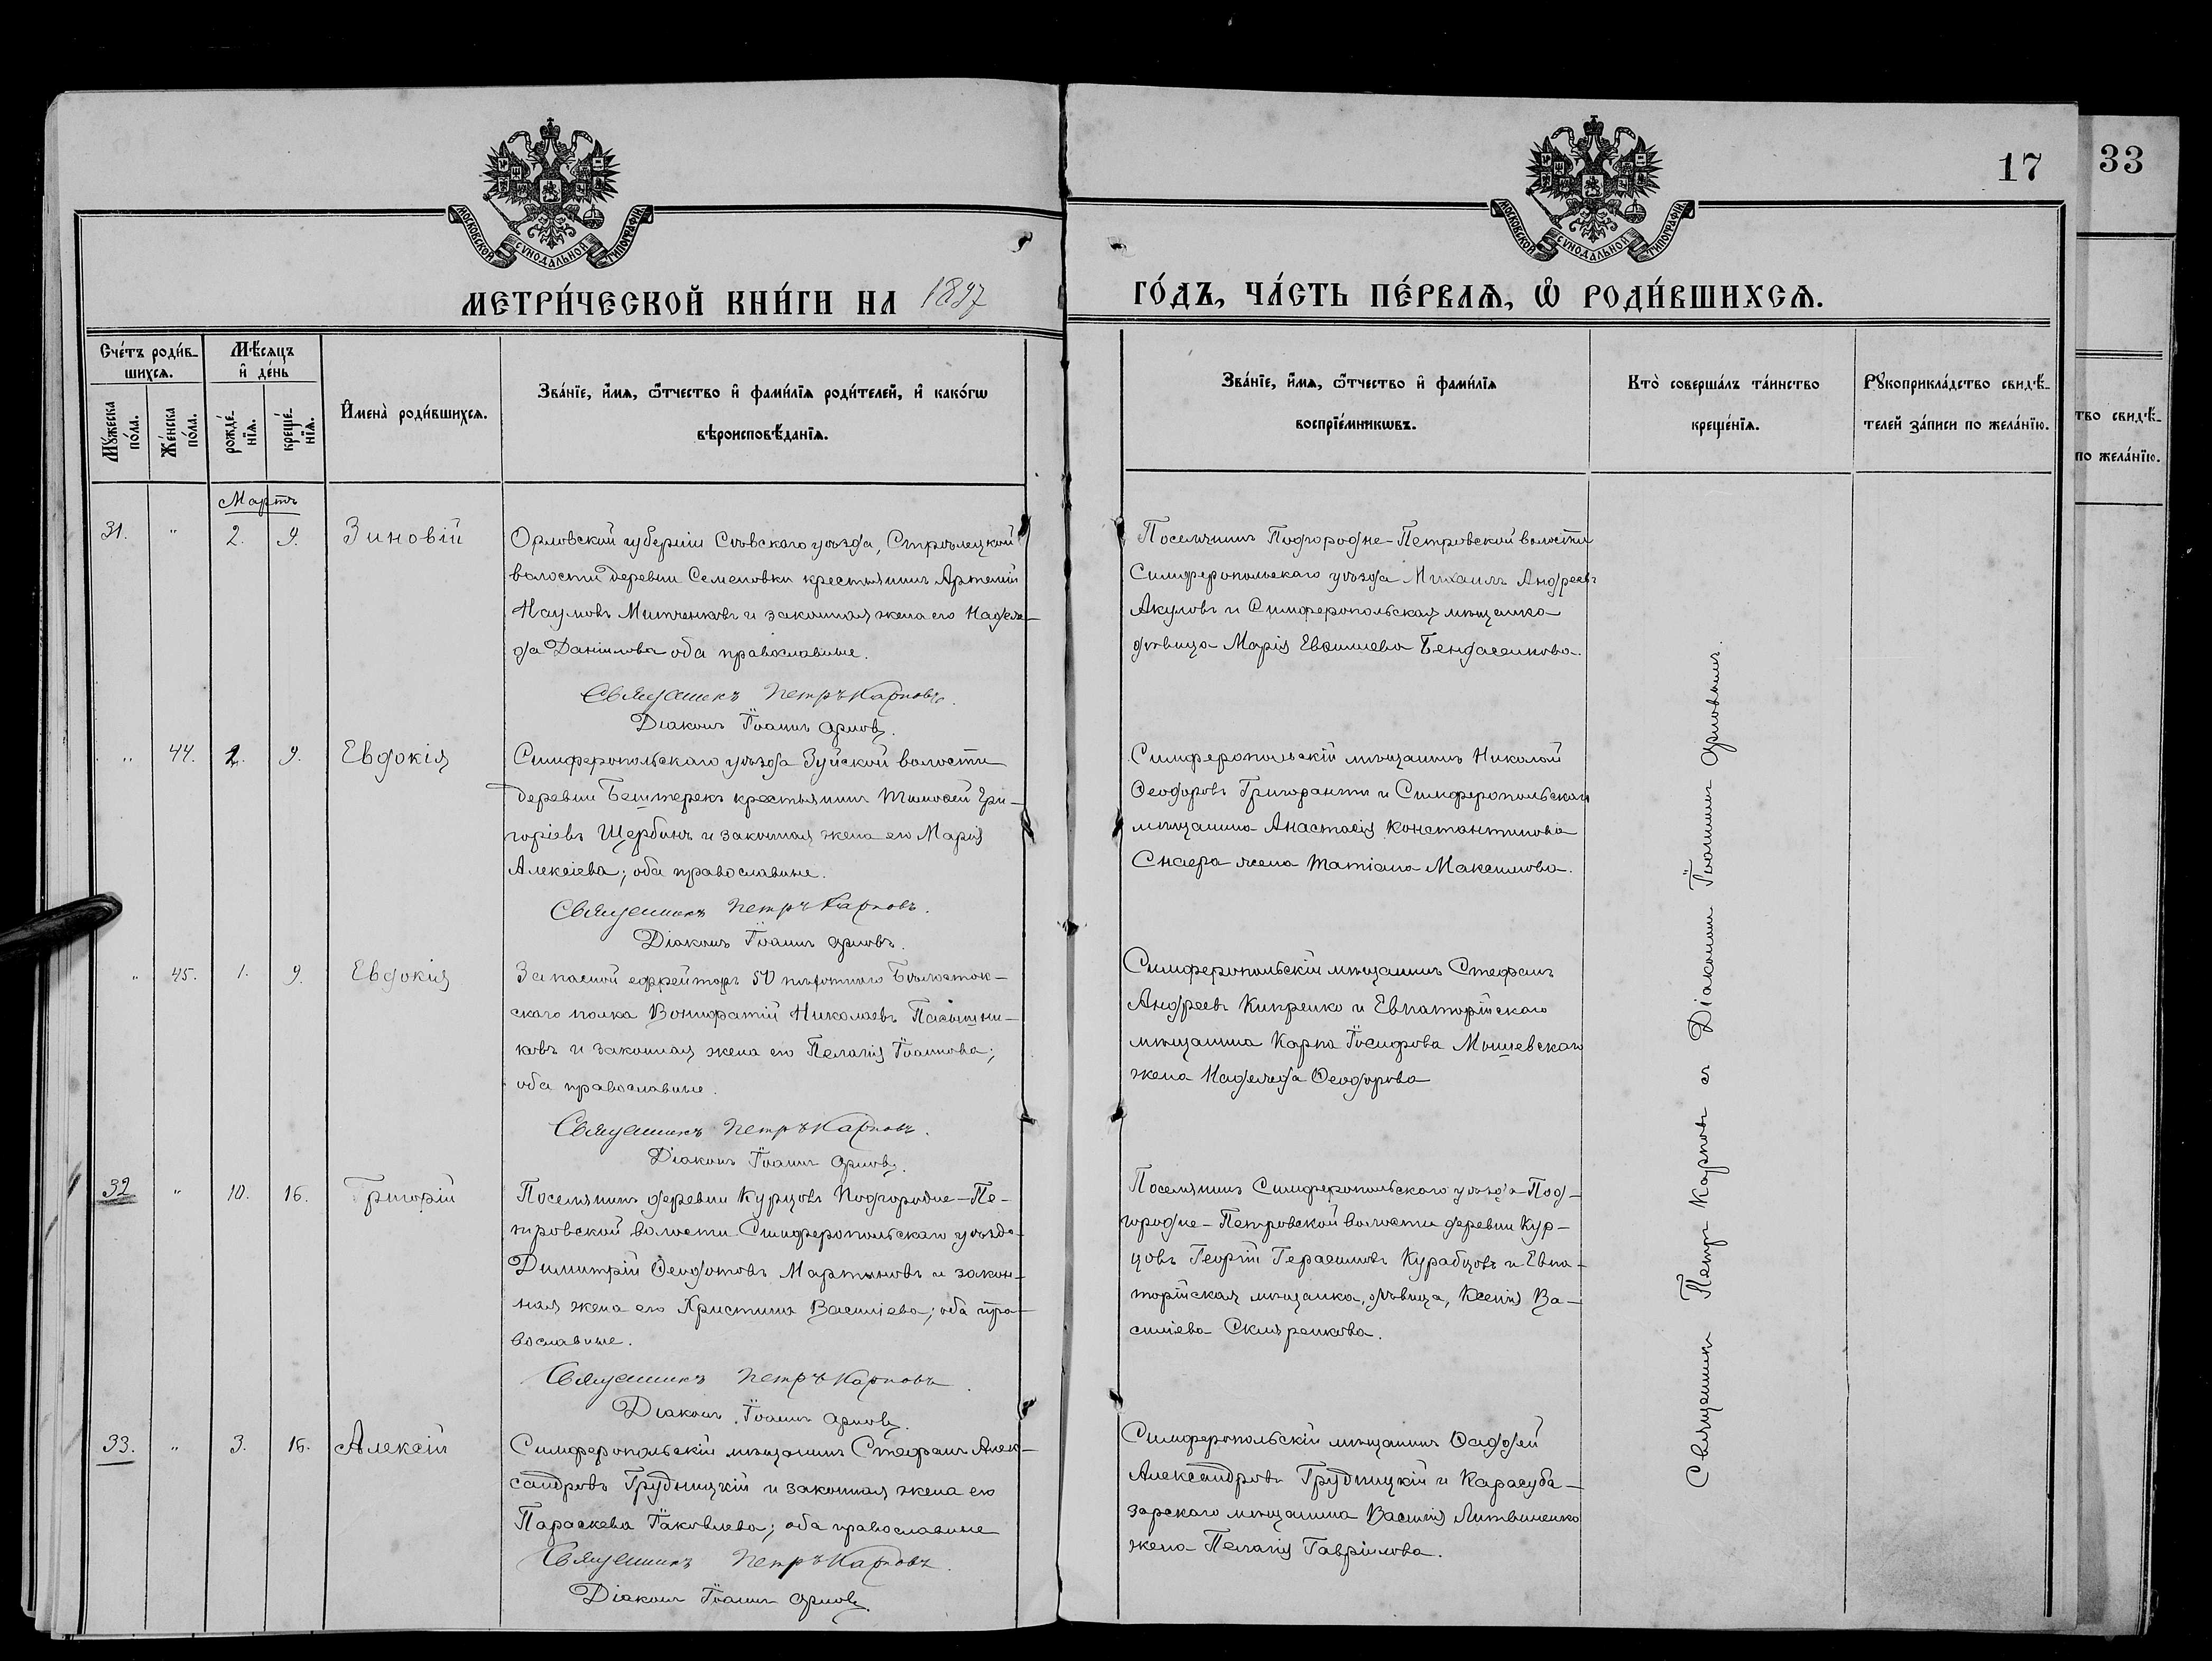 17
33
МОСКОВСКОЙ СѴНОДАЛЬНОЙ ТИПОГРАФІИ
МОСКОВСКОЙ СѴНОДАЛЬНОЙ ТИПОГРАФІИ
МЕТРИ́ЧЕСКОЙ КНИ́ГИ НА 1897
ГО́ДЪ, ЧА́СТЬ ПЕ́РВАѦ, Ѽ РОДИ́ВШИХСѦ.
Сче́тъ роди́в-
шихсѧ.
Мꙋ́жеска по́ла.
Же́нска по́ла.
Мѣ́сѧцъ
и҆ де́нь
рожде́-
нїѧ.
креще́-
нїѧ.
И҆мена̀ роди́вшихсѧ.
Зва́нїе, и҆́мѧ, ѻ҆́тчество и҆ фами́лїѧ роди́телей, и҆ како́гѡ
вѣроисповѣ́данїѧ.
Зва́нїе, и҆́мѧ, ѻ҆́тчество и҆ фами́лїѧ
воспрїе́мникѡвъ.
Кто̀ соверша́лъ та́инство
креще́нїѧ.
Рꙋкоприкла́дство свидѣ́-
телей за́писи по жела́нїю.
тво свидѣ́-
по жела́нїю.
Мартъ
31. " 2. 9. Зиновій
Орловской губерніи Сѣвского уѣзда, Стрѣлецкой
волости деревни Семеновки крестьянинъ Артемій
Наумовъ Митченковъ и законная жена его Надеж-
да Даніилова оба православные.
Священникъ Петръ Карповъ.
Діаконъ Іоаннъ Орловъ.
Поселянинъ Подгородне-Петровской волости
Симферопольскаго уѣзда Михаилъ Андреевъ
Акуловъ и Симферопольская мѣщанка
дѣвица Марія Евѳиміева Бендасенкова.
" 44. 1. 9. Евдокія
Симферопольскаго уѣзда Зуйской волости
деревни Бештерекъ крестьянинъ Тимоѳей Гри-
горіевъ Щербинъ и законная жена его Марія
Алексіева; оба православные.
Священникъ Петръ Карповъ.
Діаконъ Іоаннъ Орловъ.
Симферопольскій мѣщанинъ Николай
Ѳеодоровъ Григоранти и Симферопольскаго
мѣщанина Анастасія Константинова
жена Татіана Максимова.
" 45. 1. 9. Евдокія
Запасной ефрейторъ 50 пѣхотнаго Бѣлосток-
скаго полка Вонифатій Николаевъ Пасѣшни-
ковъ и законная жена его Пелагія Іоаннова;
оба православные.
Священникъ Петръ Карповъ.
Діаконъ Іоаннъ Орловъ.
Симферопольскій мѣщанинъ Стефанъ
Андреевъ Кипренко и Евпаторійскаго
мѣщанина Карпа Іосифова Мышевскаго
жена Надежда Ѳеодорова
32 " 10. 16. Григорій
Поселянинъ деревни Курцовъ Подгородне-Пе-
тровской волости Симферопольскаго уѣзда
Димитрій Ѳеодотовъ Мартыновъ и закон-
ная жена его Христина Василіева; оба пра-
вославные.
Священникъ Петръ Карповъ.
Діаконъ Іоаннъ Орловъ.
Поселянинъ Симферопольскаго уѣзда Под-
городне-Петровской волости деревни Кур-
цовъ Георгій Герасимовъ Курабцовъ и Евпа-
торійская мѣщанка, дѣвица, Ксенія Ва-
силіева Скляренкова.
33. " 3. 16. Алексій
Симферопольскій мѣщанинъ Стефанъ Алек-
сандровъ Грудницкій и законная жена его
Параскева Іаковлева; оба православные
Священникъ Петръ Карповъ.
Діаконъ Іоаннъ Орловъ.
Симферопольскій мѣщанинъ Ѳаддей
Александровъ Грудницкій и Карасуба-
зарскаго мѣщанина Василія Литвиненко
жена Пелагія Гавріилова.
Священникъ Петръ Карповъ съ Діакономъ Іоанномъ Орловымъ.